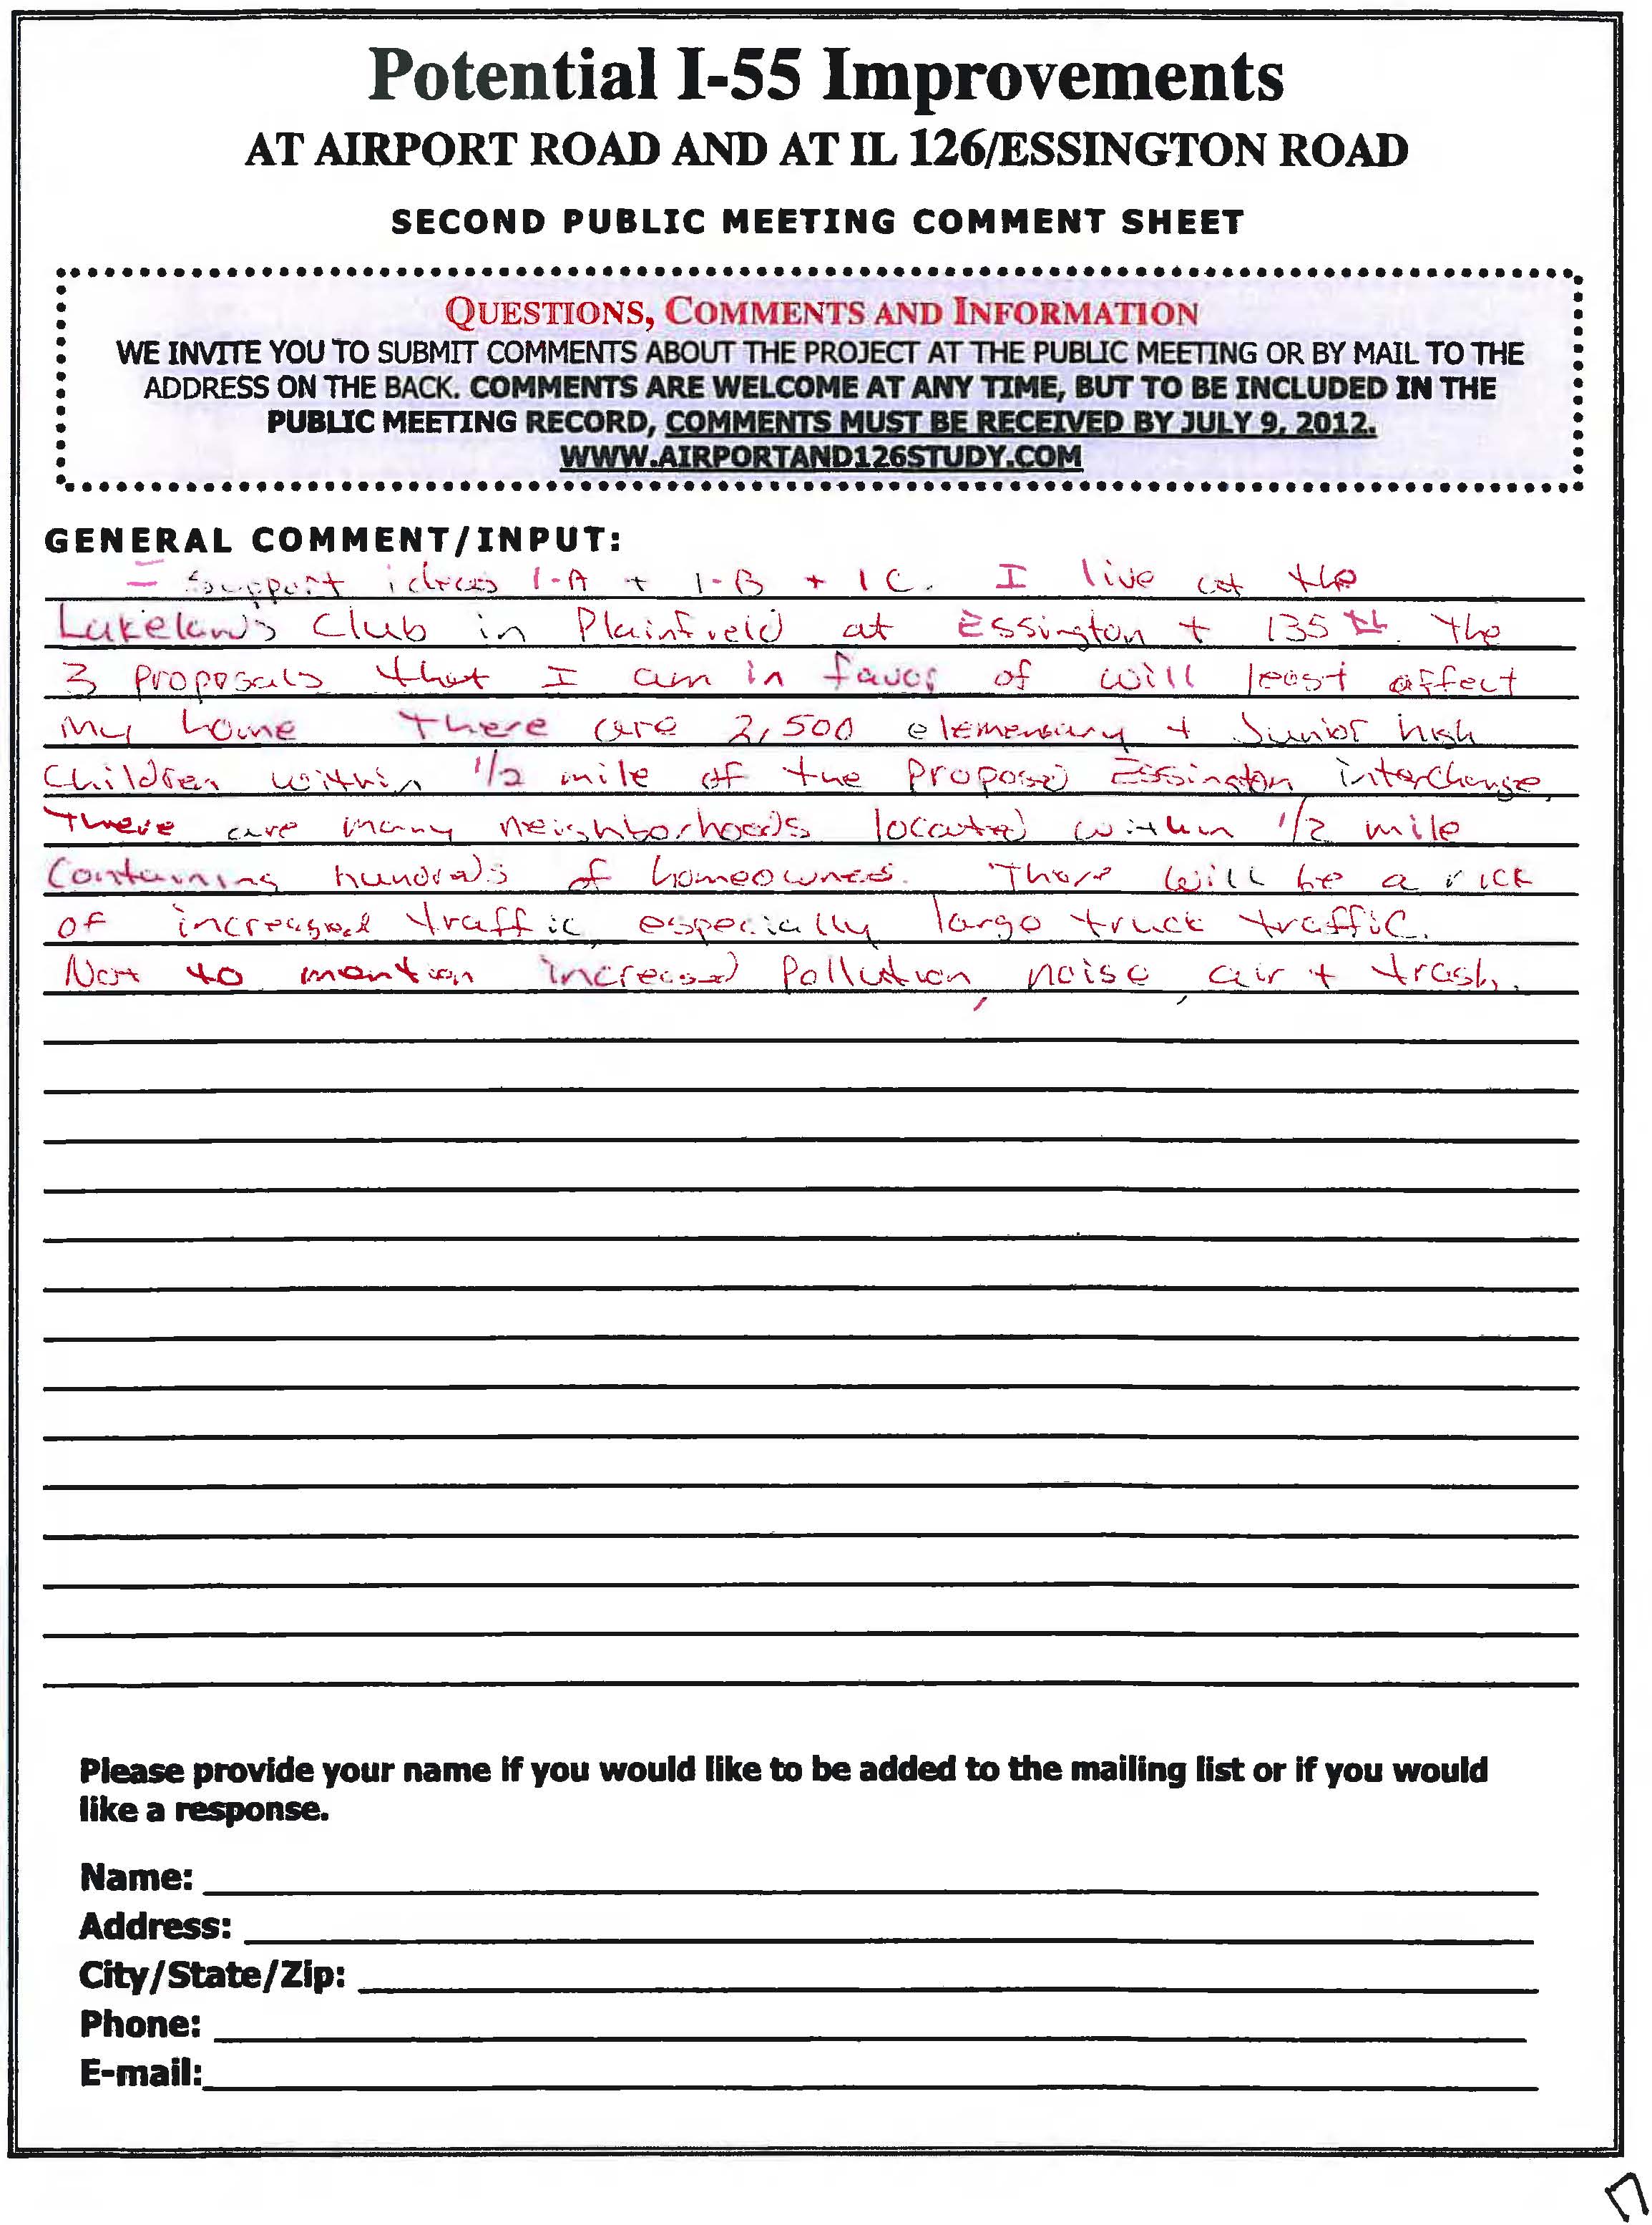 Potential I-55 Improvements
AT AIRPORT ROAD AND AT IL 126/ESSINGTON ROAD
SECOND PUBLIC MEETING COMMENT SHEET
QUESTIONS, COMMENTS AND INFORMATION
WE INVITE YOU TO SUBMIT COMMENTS ABOUT THE PROJECT AT THE PUBLIC MEETING OR BY MAIL TO THE
ADDRESS ON THE BACK. COMMENTS ARE WELCOME AT ANY TIME, BUT TO BE INCLUDED IN THE
PUBLIC MEETING RECORD, COMMENTS MUST BE RECEIVED BY JULY 9, 2012.
WWW.AIRPORTAND126STUDY.COM
GENERAL COMMENT/INPUT:
I support ideas 1-A + 1-B + 1C. I live at the
Lakelands Club in Plainfield at Essington + 135th. The
3 proposals that I am in favor of will least affect
my home There are 2,500 elementary + Junior high
Children within 1/2 mile of the proposed Essington interchange.
There are many neighborhoods located within 1/2 mile
Containing hundreds of homeowners. There will be a rick
of increased traffic, especially large truck traffic.
Not to mention increased Pollution, noise, air + trash.
Please provide your name if you would like to be added to the mailing list or if you would
like a response.
Name:
Address:
City/State/Zip:
Phone:
E-mail: